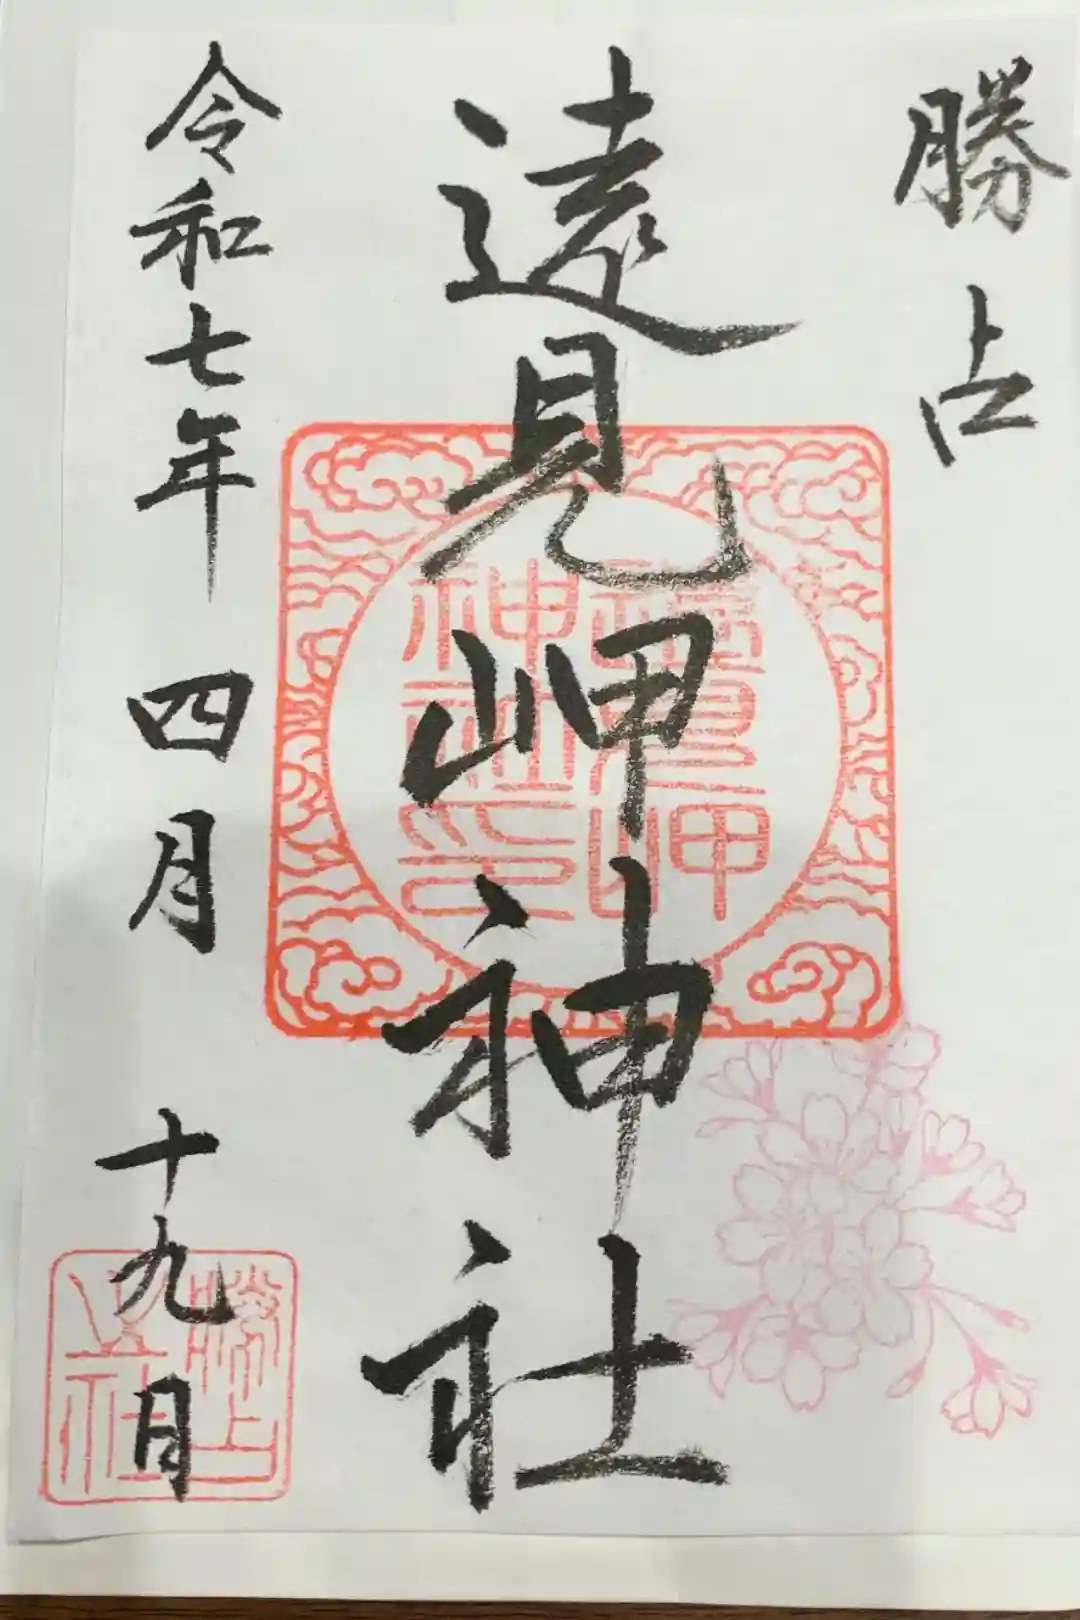 勝占
遠見岬神社
令和七年 四月 十九日
遠見岬
神社印